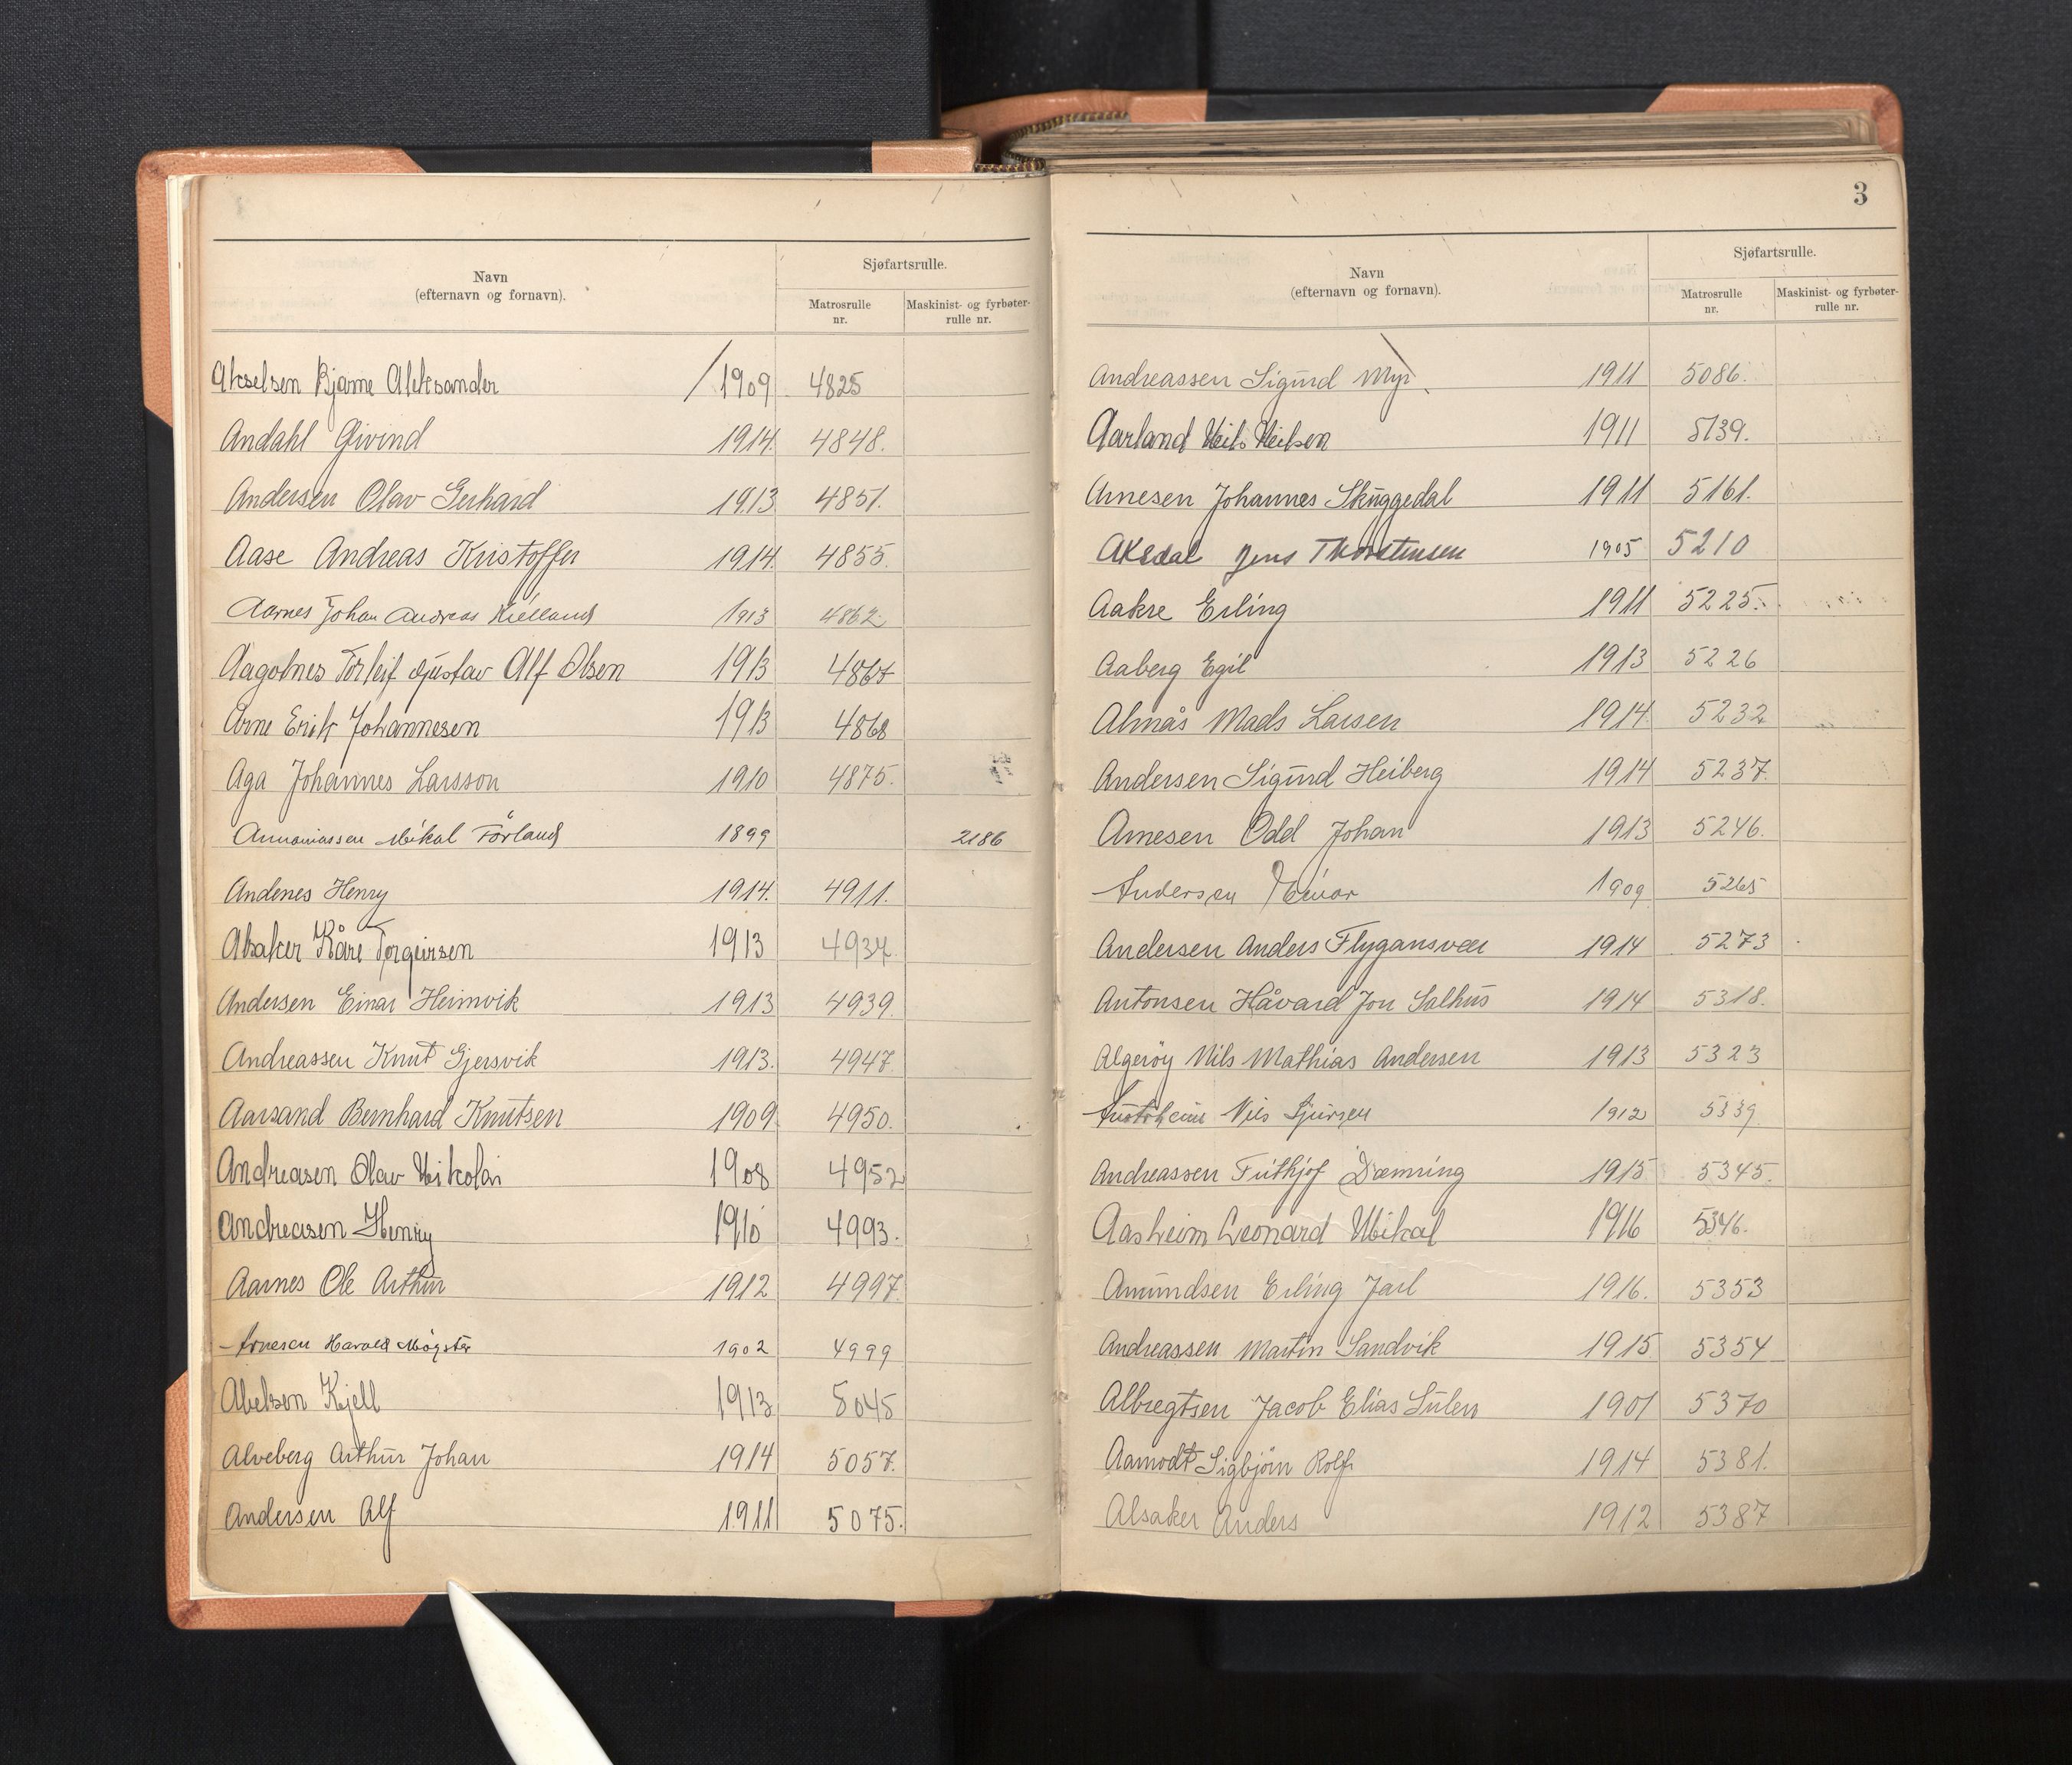 Navn
(efternavn og fornavn).
Sjøfartsrulle.
Matrosrulle nr.
Maskinist- og fyrbøter-rulle nr.
Akselsen Bjarne Aleksander 1909 4825
Andahl Eivind 1914. 4848.
Andersen Olav Gerhard 1913 4851.
Aase Andreas Kristoffer 1914. 4855.
Aarnes Johan Andreas Kielland 1913 4862.
Aagotnes Torleif Gustav Alf Olsen 1913
Arne Erik Johannesen 1913 4868
Aga Johannes Larsson 1910 4875.
Annaniassen Mikal Førland 1899 2186
Andenes Henry 1914. 4911.
Alsaker Kåre Torgeirsen 1913 4937.
Andersen Einar Heimvik 1913 4939.
Andreassen Knut Gjersvik 1913. 4947.
Aarsand Bernhard Knutsen 1909 4950.
Andreasen Olav Nikolai 1908 4952
Andreasen Henry 1910 4993.
Aarnes Ole Arthur 1912 4997.
Arnesen Harald Møgster 1902 4999
Abelsen Kjell 1913 5045
Alveberg Arthur Johan 1914 5057.
Andersen Alf 1911 5075.
3
Navn
(efternavn og fornavn).
Sjøfartsrulle.
Matrosrulle nr.
Maskinist- og fyrbøter-rulle nr.
Andreassen Sigurd Myr 1911 5086.
Aarland Nils Nilsen 1911 5139.
Arnesen Johannes Skuggedal 1911 5161.
Aksdal Jens Thorstensen 1905 5210
Aakre Erling 1911 5225.
Aaberg Egil 1913 5226
Almås Mads Larsen 1914 5232
Andersen Sigurd Heiberg 1914 5237.
Arnesen Odd Johan 1913 5246.
Andersen Einar 1909 5265
Andersen Anders Flygansvær 1914 5273
Antonsen Håvard Jon Salhus 1914 5318.
Algerøy Nils Mathias Andersen 1913 5323
Austrheim Nils Sjursen 1912 5339
Andreassen Frithjof Dæmring 1915 5345.
Aasheim Leonard Mikal 1916 5346.
Amundsen Erling Jarl 1916. 5353
Andreassen Martin Sandvik 1915 5354
Albregtsen Jacob Elias Sulen 1901 5370
Aamodt Sigbjørn Rolf 1914 5381.
Alsaker Anders 1912 5387